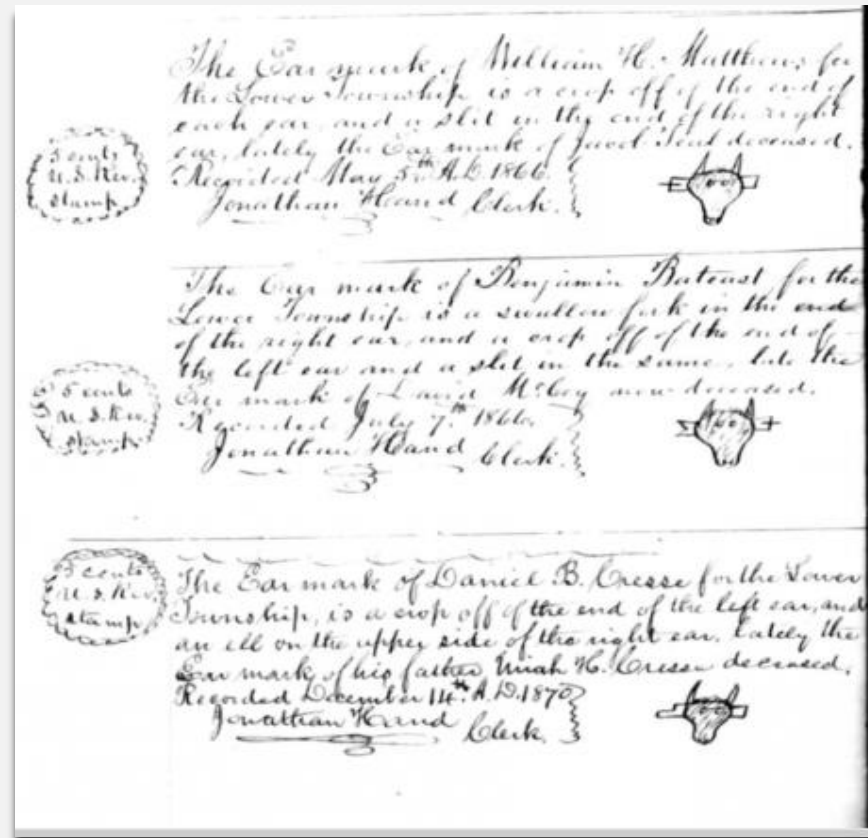 The Ear mark of William H. Matthews for
the Lower Township is a crop off of the end of
each ear, and a slit in the end of the right
ear, lately the Ear mark of Jacob Teal deceased.
5 cents
U.S. Rev.
stamp
Recorded May 5th A.D. 1866.
Jonathan Hand Clerk.
The Ear mark of Benjamin for the
Lower Township is a swallow fork in the end
of the right ear, and a crop off of the end of
the left ear and a slit in the same, late the
5 cents
U.S. Rev.
stamp
Ear mark of David McCoy now deceased.
Recorded July 7th 1866.
Jonathan Hand Clerk.
5 cents
U.S. Rev.
stamp
The Ear mark of Daniel B. Cresse for the Lower
Township, is a crop off of the end of the left ear, and
an ell on the upper side of the right ear. lately the
Ear mark of his father Uriah H. Cresse deceased.
Recorded December 14th A.D. 1870
Jonathan Hand
Clerk.